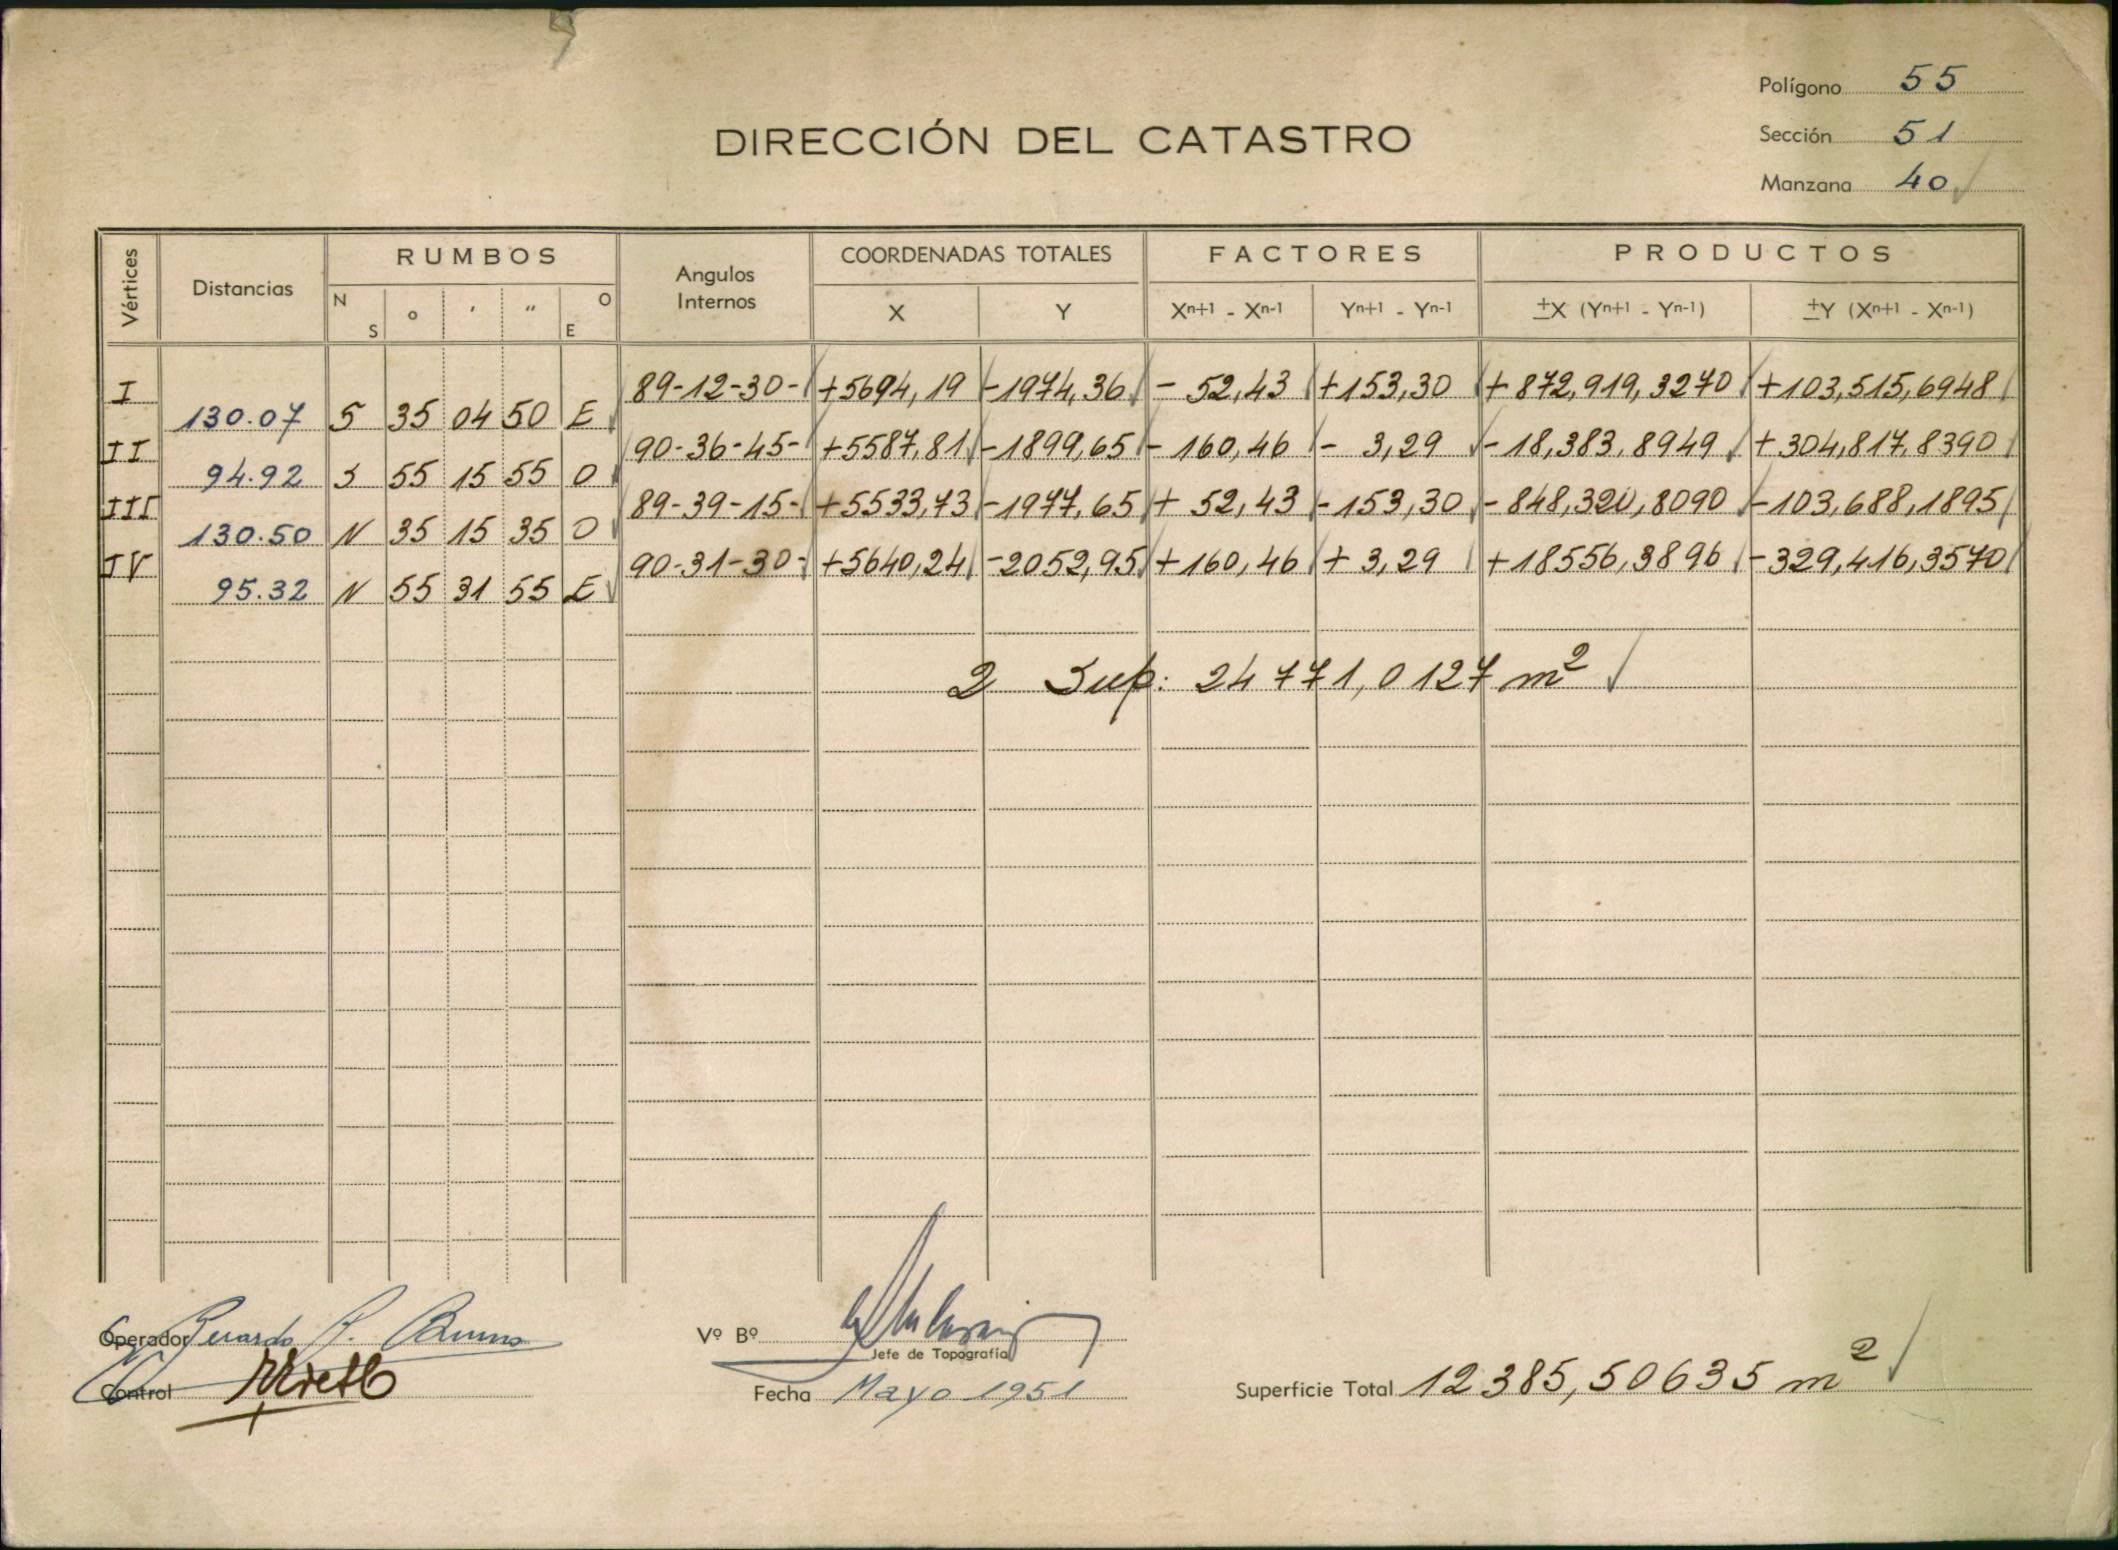 Polígono 55
DIRECCIÓN DEL CATASTRO
Sección 51
Manzana 40
Vértices Distancias RUMBOS Angulos Internos COORDENADAS TOTALES FACTORES PRODUCTOS
N S o ' " O E X Y Xn+1 - Xn-1 Yn+1 - Yn-1 ±X (Yn+1 - Yn-1) ±Y (Xn+1 - Xn-1)
I 89-12-30- +5694,19 -1974,36 - 52,43 +153,30 +872,919,3270 +103,515,6948
130.07 S 35 04 50 E
II 90-36-45- +5587,81 -1899,65 - 160,46 - 3,29 -18,383,8949 +304,817,8390
94.92 S 55 15 55 O
III 89-39-15- +5533,73 -1977,65 + 52,43 -153,30 -848,320,8090 -103,688,1895
130.50 N 35 15 35 O
IV 90-31-30- +5640,24 -2052,95 +160,46 + 3,29 +18556,3896 -329,416,3570
95.32 N 55 31 55 E
2 Sup: 24771,0127 m2
Operador Vº Bº
Jefe de Topografía
Control Fecha Mayo 1951 Superficie Total 12385,50635 m2